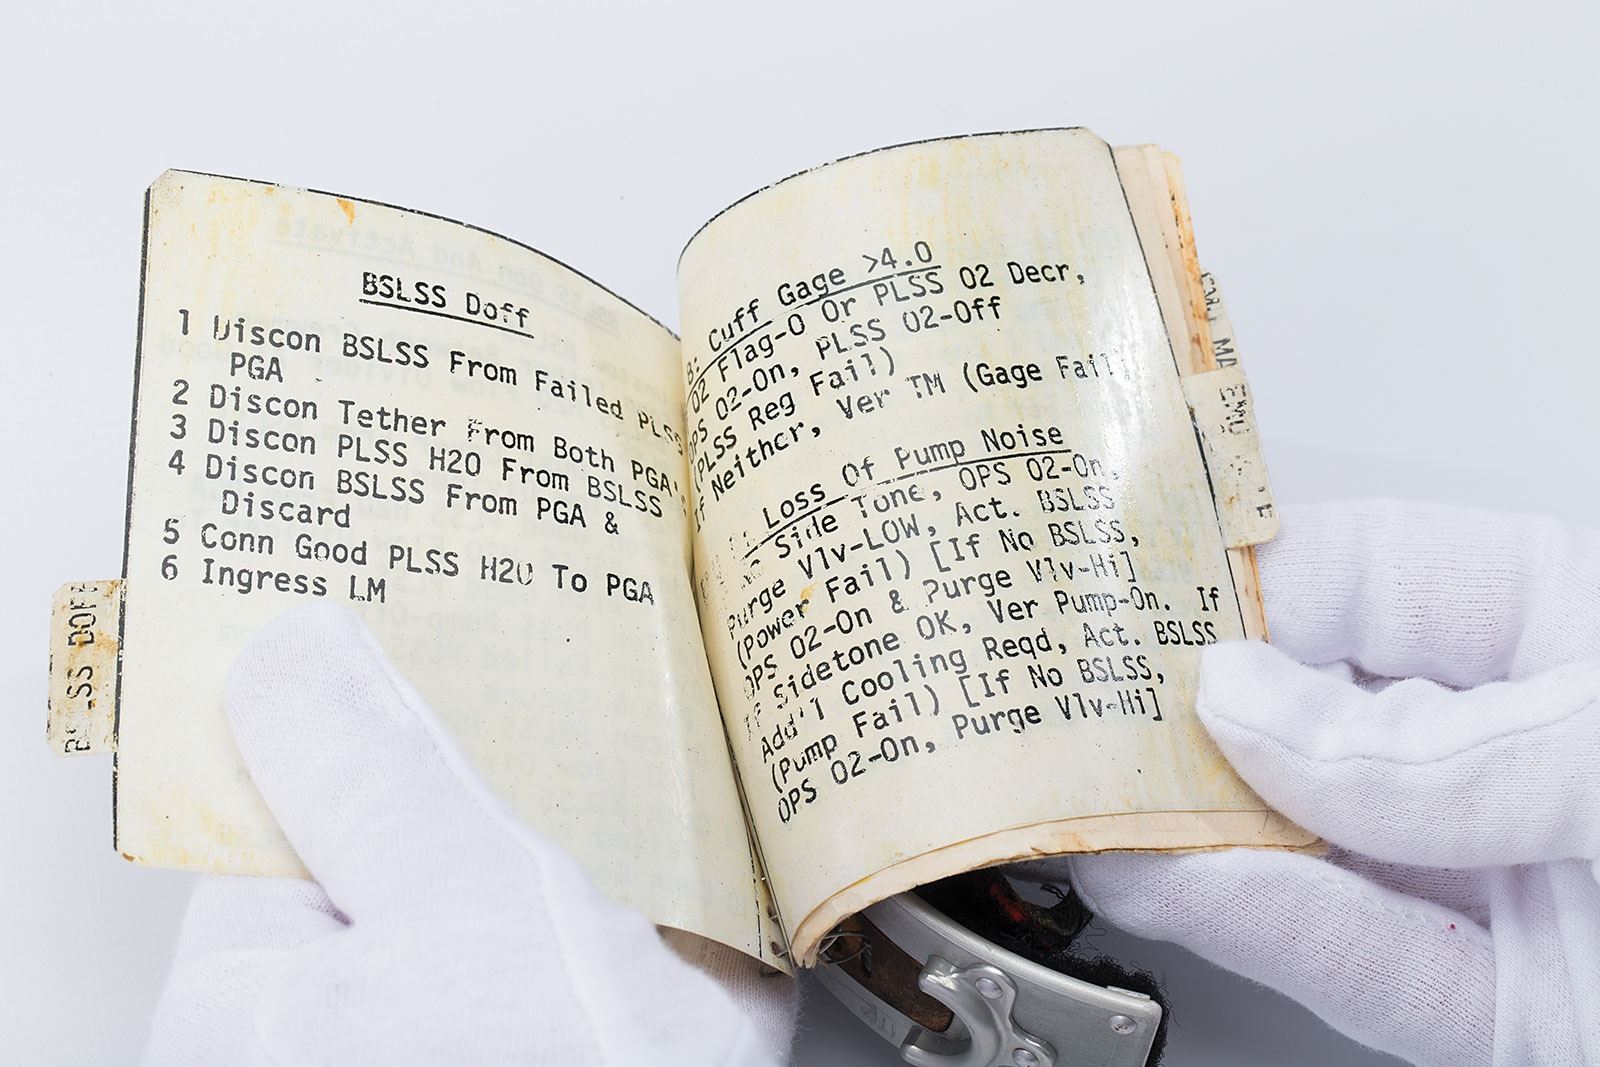 BSLSS Doff
1 Discon BSLSS From Failed PLSS
PGA
2 Discon Tether From Both PGA's
3 Discon PLSS H2O From BSLSS
4 Discon BSLSS From PGA &
Discard
5 Conn Good PLSS H2O To PGA
6 Ingress LM
BSLSS DOFF
B: Cuff Gage >4.0
O2 Flag-O Or PLSS O2 Decr,
OPS O2-On, PLSS O2-Off
(PLSS Reg Fail)
If Neither, Ver TM (Gage Fail)
Loss Of Pump Noise
No Side Tone, OPS O2-On,
Purge Vlv-LOW, Act. BSLSS
(Power Fail) [If No BSLSS,
OPS O2-On & Purge Vlv-Hi]
If Sidetone OK, Ver Pump-On. If
Add'l Cooling Reqd, Act. BSLSS
(Pump Fail) [If No BSLSS,
OPS O2-On, Purge Vlv-Hi]